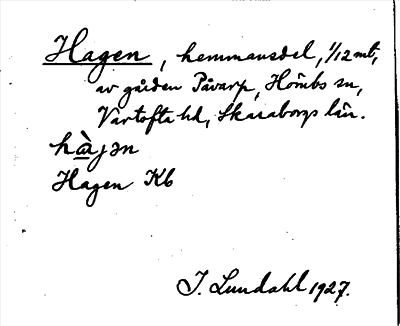 Hagen, hemmansdel, 1/12 mt,
av gården Påvarp, Hömbs sn,
Vartofta hd, Skaraborgs län.
hàjən
Hagen Kb
I. Lundahl 1927.